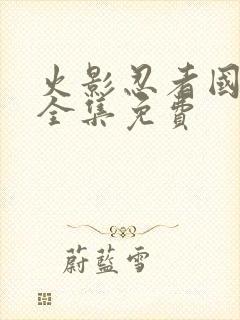 火影忍者國
全集免費
蔚藍雪